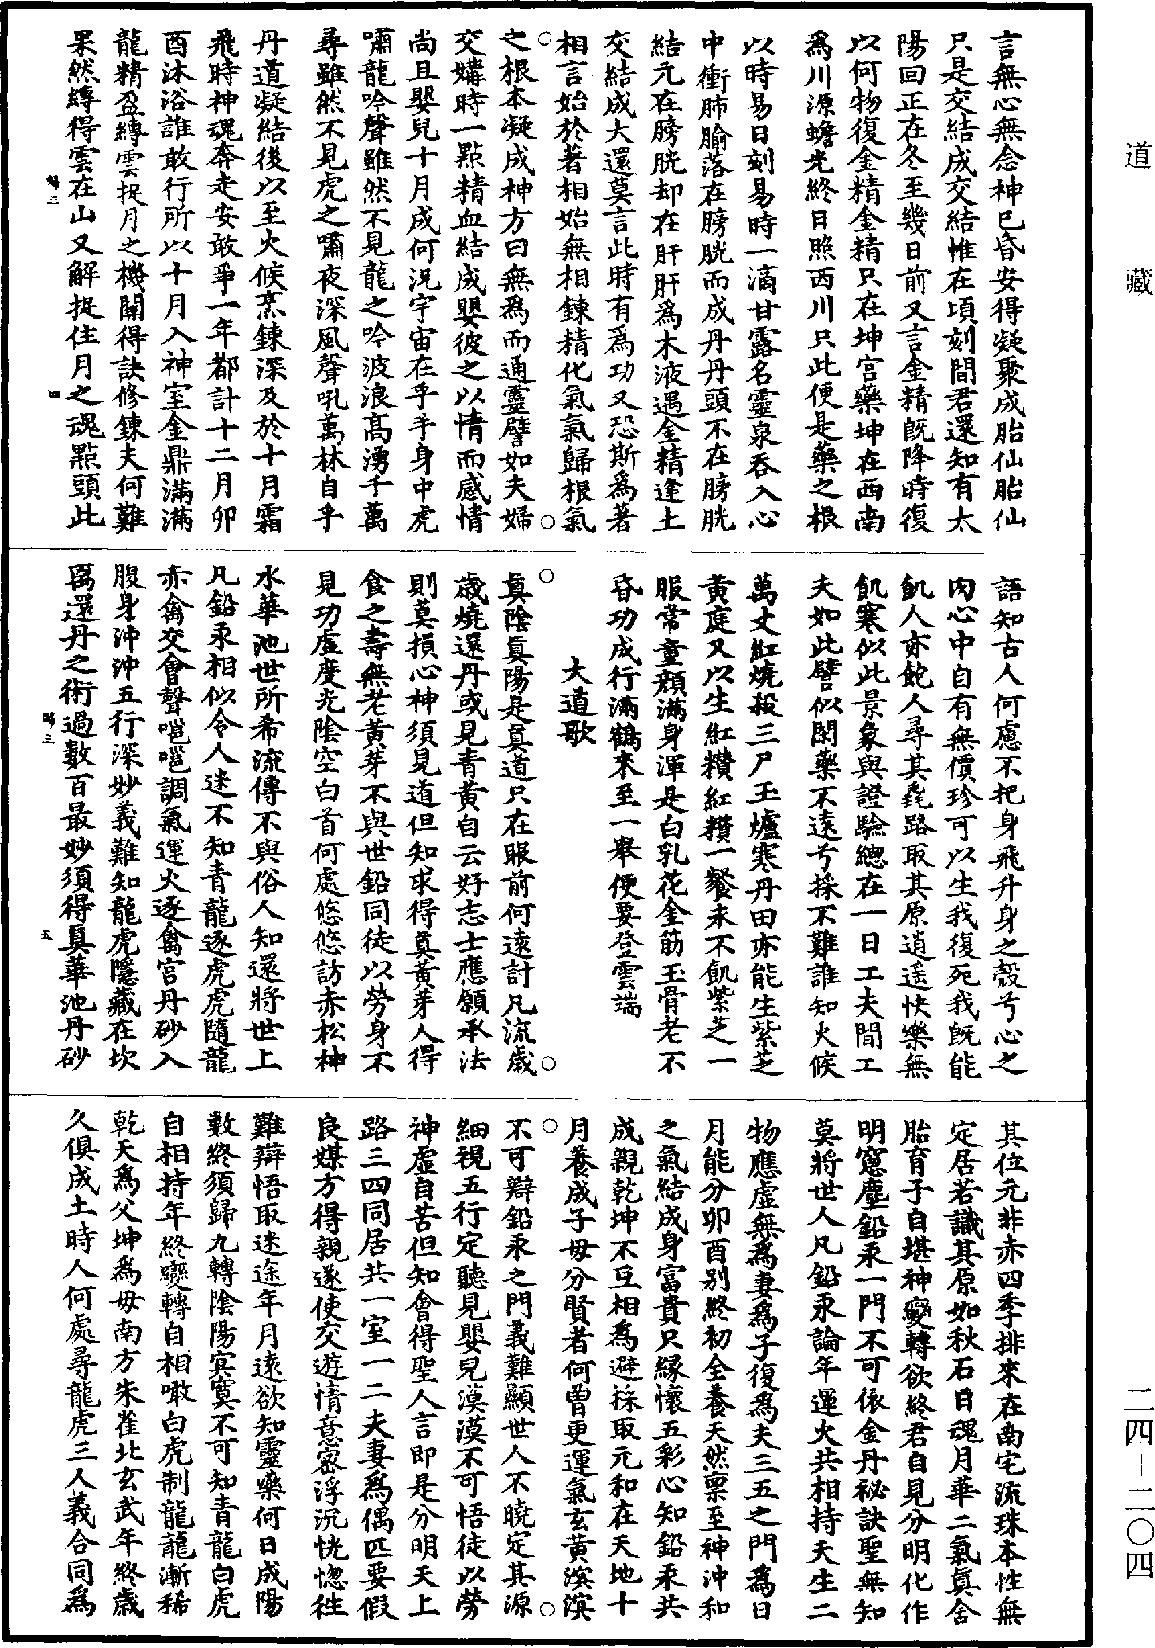 道藏
言無心無念神已昏安得凝聚成胎仙胎仙
只是交結成交結惟在頃刻間君還知有太
陽回正在冬至幾日前又言金精既降時復
以何物復金精金精只在坤宮藥坤在西南
為川源蟾光終日照西川只此便是藥之根
以時易日刻易時一滴甘露名靈泉吞入心
中衝肺腧落在膀胱而成丹丹頭不在膀胱
結元在膀胱却在肝肝為木液遇金精逢土
交結成大還莫言此時有為功又恐斯為著
相言始於著相始無相鍊精化氣氣歸根氣
之根本凝成神方曰無為而通靈譬如夫婦
交媾時一點精血結成嬰彼之以情而感情
尚且嬰兒十月成何況宇宙在乎手身中虎
嘯龍吟聲雖然不見龍之吟波浪高湧千萬
尋雖然不見虎之嘯夜深風聲吼萬林自乎
丹道凝結後以至火候烹鍊深及於十月霜
飛時神魂奔走安敢爭一年都計十二月卯
酉沐浴誰敢行所以十月入神室金鼎滿滿
龍精盈縛雲捉月之機關得訣修鍊夫何難
果然縛得雲在山又解捉住月之魂點頭此
四
語知古人何慮不把身飛升身之殼兮心之
肉心中自有無價珍可以生我復死我既能
飢人亦飽人尋其毳路取其原逍遙快樂無
飢寒似此景象與證驗總在一日工夫間工
夫如此譬似閑藥不遠兮採不難誰知火候
萬丈紅燒殺三尸玉爐寒丹田亦能生紫芝
黃庭又以生紅糝紅糝一餐未不飢紫芝一
服常童顏滿身渾是白乳花金筋玉骨老不
昏功成行滿鶴來至一舉便要登雲端
大道歌
真陰真陽是真道只在眼前何遠討凡流歲
歲燒還丹或見青黃自云好志士應願承法
則莫損心神須見道但知求得真黃芽人得
食之壽無老黃芽不與世鉛同徒以勞身不
見功虛度光陰空白首何處悠悠訪赤松神
水華池世所希流傳不與俗人知還將世上
凡鉛汞相似令人迷不知青龍逐虎虎隨龍
赤禽交會聲嗈嗈調氣運火逐禽宮丹砂入
腹身沖沖五行深妙義難知龍虎隱藏在坎
离還丹之術過數百最妙須得真華池丹砂
五
其位元非赤四季排來在南宅流珠本性無
定居若識其原如秋石日魂月華二氣真含
胎育子自堪神變轉欲終君自見分明化作
明窻塵鉛汞一門不可依金丹祕訣聖無知
莫將世人凡鉛汞論年運火共相持夫生二
物應虛無為妻為子復為夫三五之門為日
月能分卯酉別終初全養天然稟至神沖和
之氣結成身富貴只緣懷五彩心知鉛汞共
成親乾坤不互相為避採取元和在天地十
月養成子母分賢者何曾更運氣玄黃溟溟
不可辯鉛汞之門義難顯世人不曉定其源
細視五行定聽見嬰兒漠漠不可悟徒以勞
神虛自苦但知會得聖人言即是分明天上
路三四同居共一室一二夫妻為偶匹要假
良媒方得親遂使交遊情意密浮沉恍惚往
難辯悟取迷途年月遠欲知靈藥何日成陽
數終須歸九轉陰陽冥寞不可知青龍白虎
自相持年終變轉自相噉白虎制龍龍漸稀
乾天為父坤為母南方朱雀北玄武年終歲
久俱成土時人何處尋龍虎三人義合同為
二四-二〇四